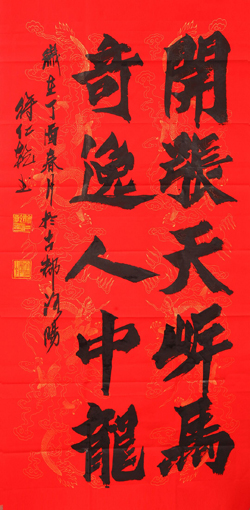 開張天岸馬
奇逸人中龍
歲在丁酉春月於古都洛陽